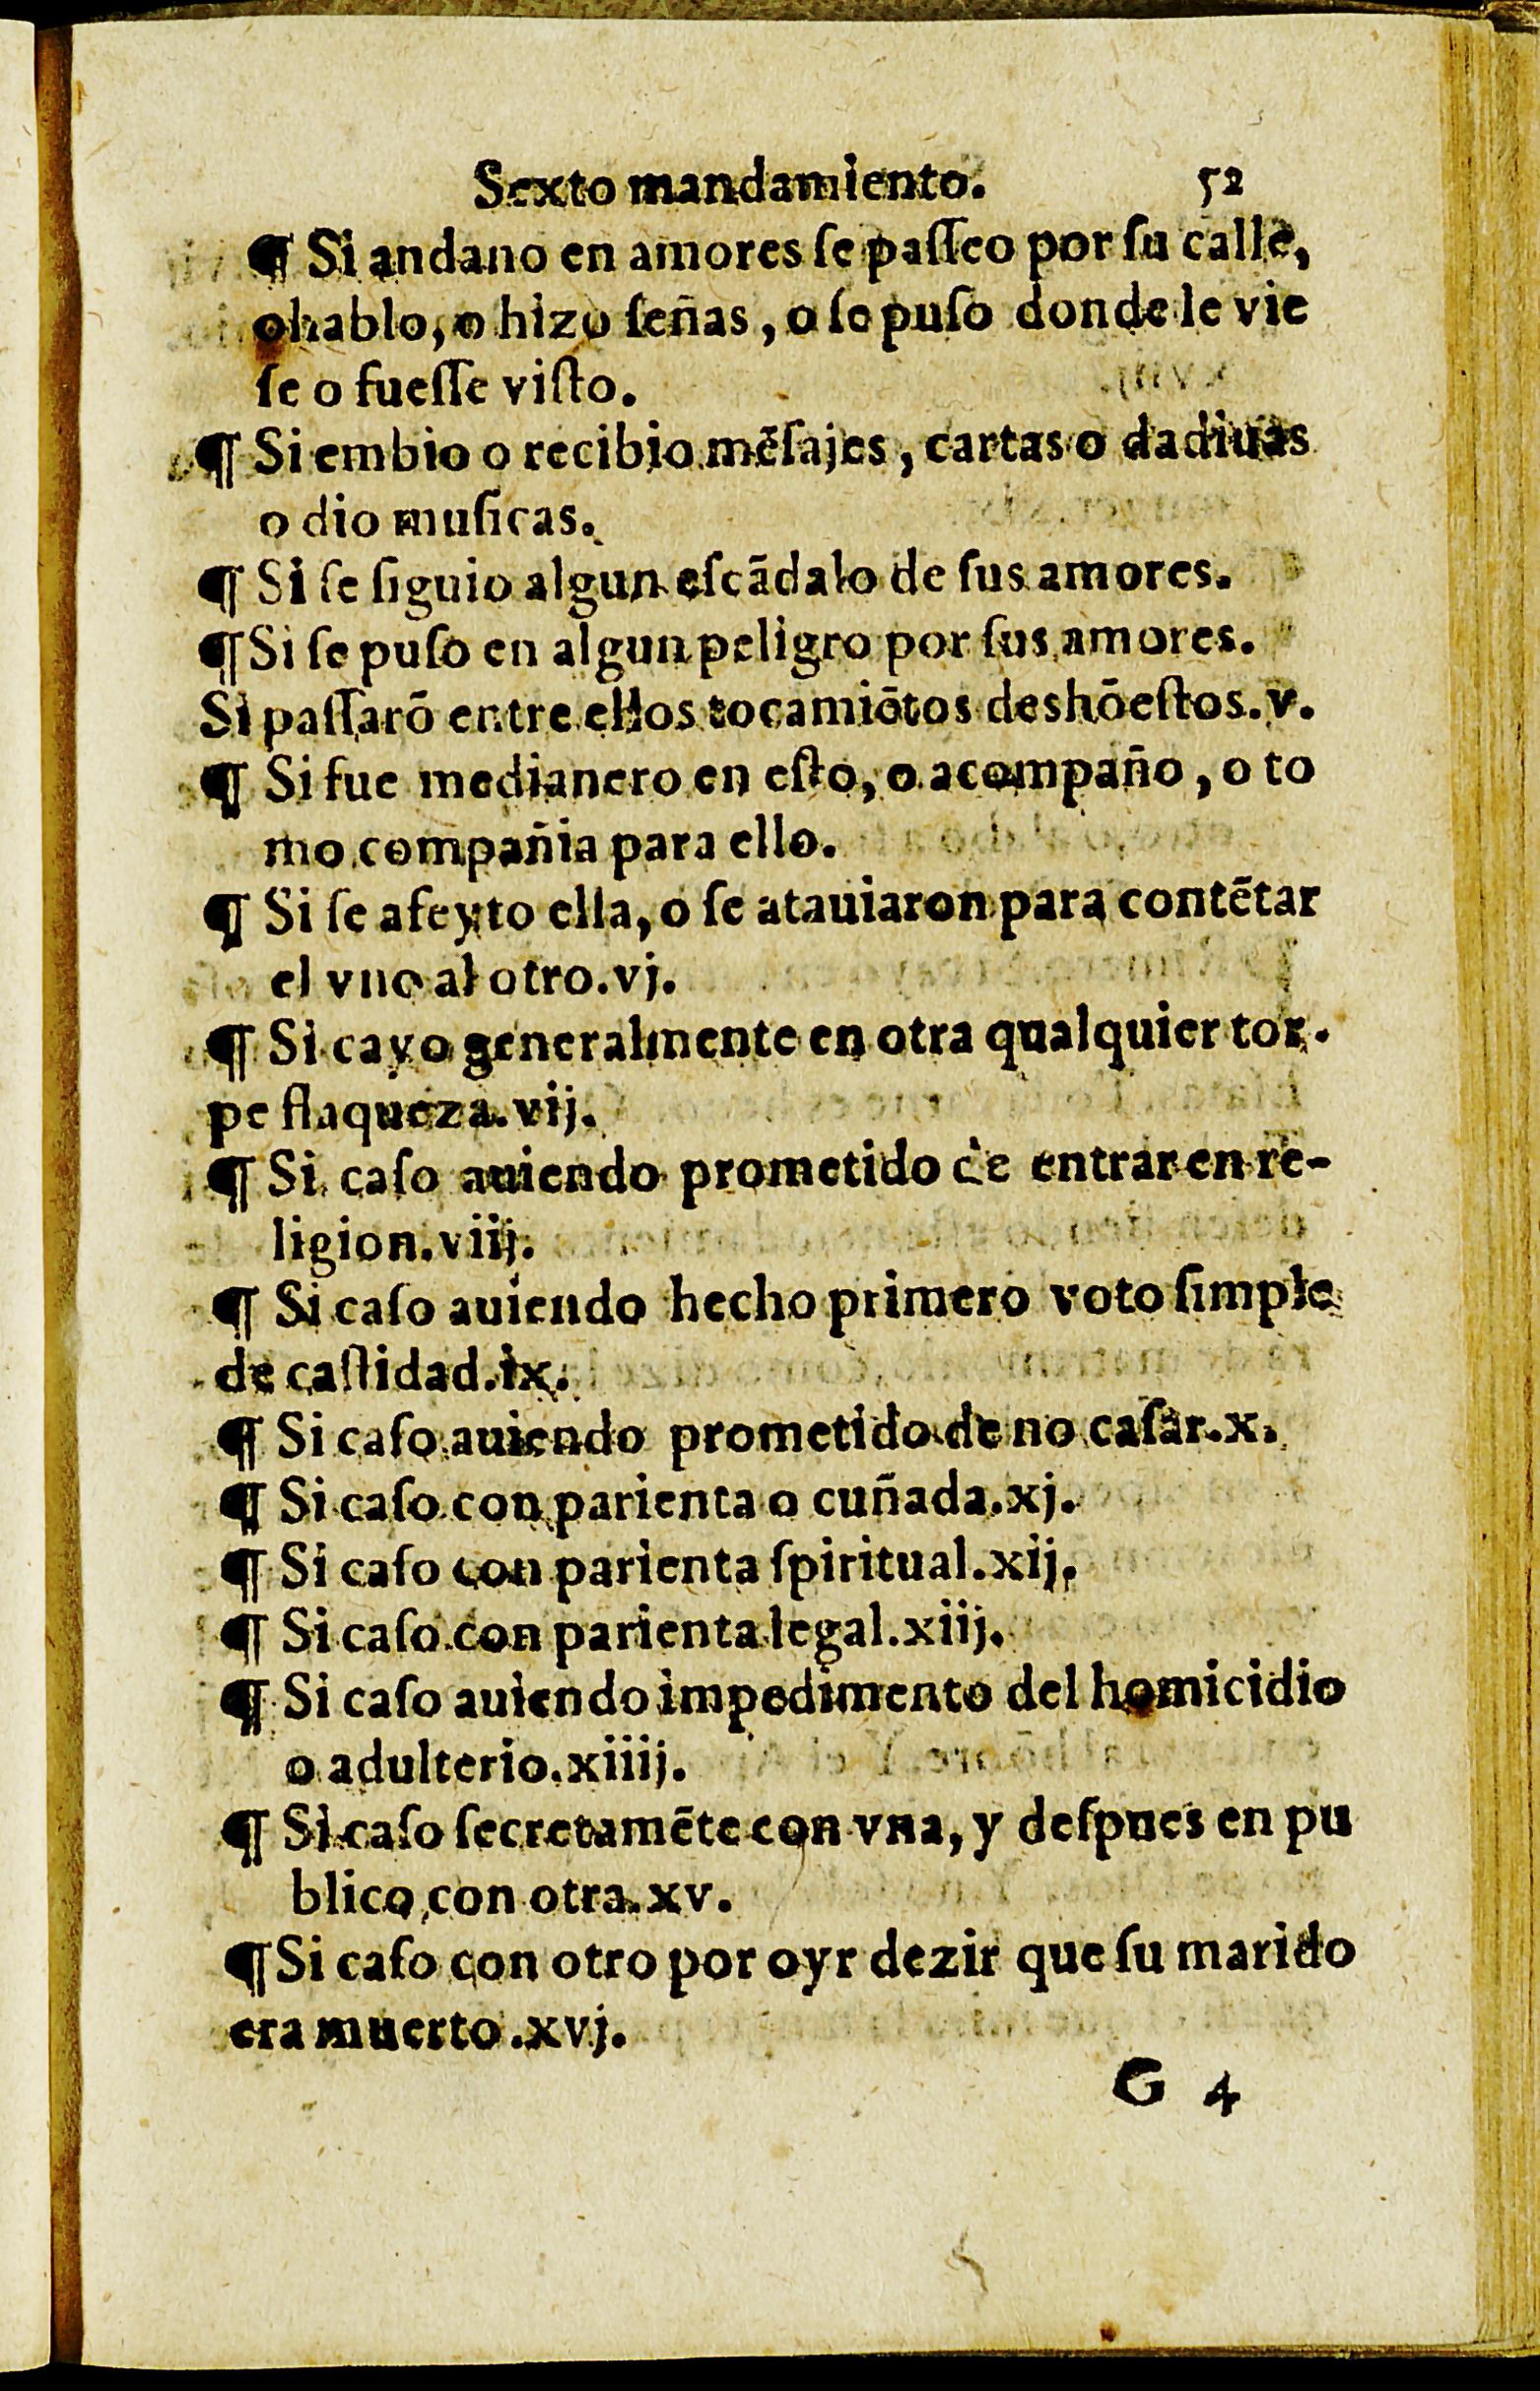 Sexto mandamiento. 52
¶ Si andano en amores ſe paſſeo por ſu calle,
o hablo, o hizo ſeñas, o ſe puſo donde le vie
ſe o fueſſe viſto.
¶ Si embio o recibio mẽſajes, cartas o dadiuas
o dio muſicas.
¶ Si ſe ſiguio algun eſcãdalo de ſus amores.
¶ Si ſe puſo en algun peligro por ſus amores.
Si paſſarõ entre ellos tocamiẽtos deshõeſtos. v.
¶ Si fue medianero en eſto, o acompaño, o to
mo compañia para ello.
¶ Si ſe afeyto ella, o ſe atauiaron para contẽtar
el vno al otro. vj.
¶ Si cayo generalmente en otra qualquier tor-
pe flaqueza. vij.
¶ Si caſo auiendo prometido de entrar en re-
ligion. viij.
¶ Si caſo auiendo hecho primero voto ſimple
de caſtidad. ix.
¶ Si caſo auiendo prometido de no caſar. x.
¶ Si caſo con parienta o cuñada. xj.
¶ Si caſo con parienta ſpiritual. xij.
¶ Si caſo con parienta legal. xiij.
¶ Si caſo auiendo impedimento del homicidio
o adulterio. xiiij.
¶ Si caſo ſecretamẽte con vna, y deſpues en pu
blico con otra. xv.
¶ Si caſo con otro por oyr dezir que ſu marido
era muerto. xvj.
G 4